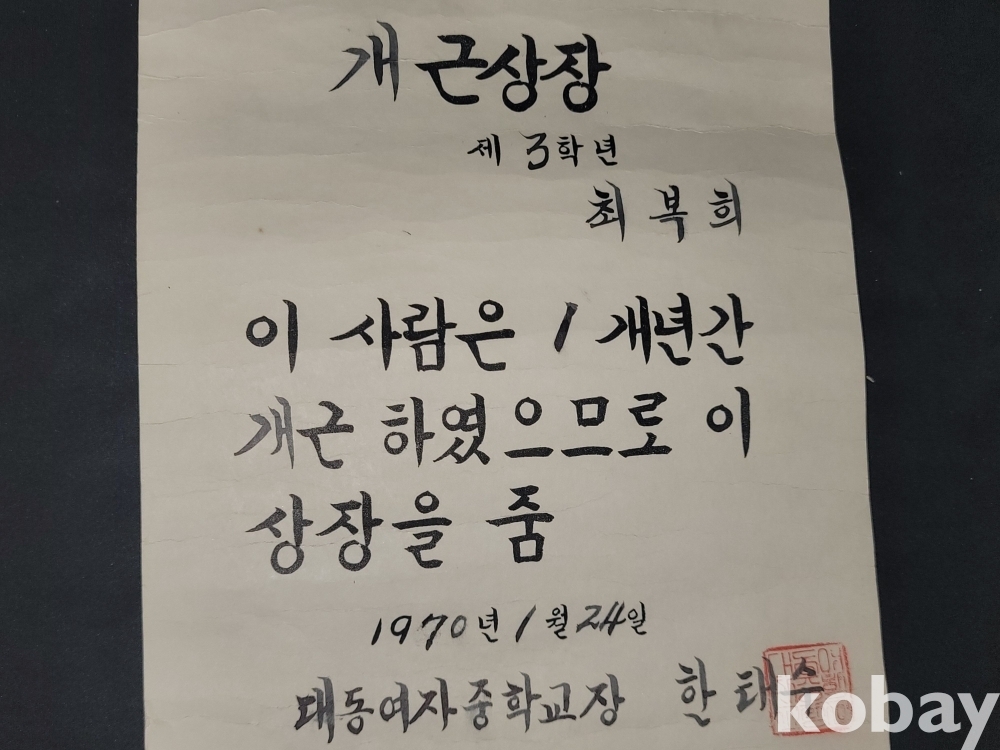 개근상장
제 3학년
최복희
이 사람은 1개년간
개근 하였으므로 이
상장을 줌
1970년 1월 24일
대동여자중학교장 한태수
kobay